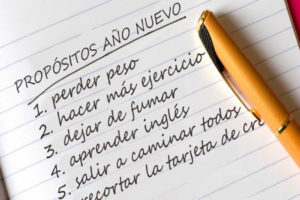 PROPÓSITOS AÑO NUEVO
1. perder peso
2. hacer más ejercicio
3. dejar de fumar
4. aprender inglés
5. salir a caminar todos
recortar la tarjeta de